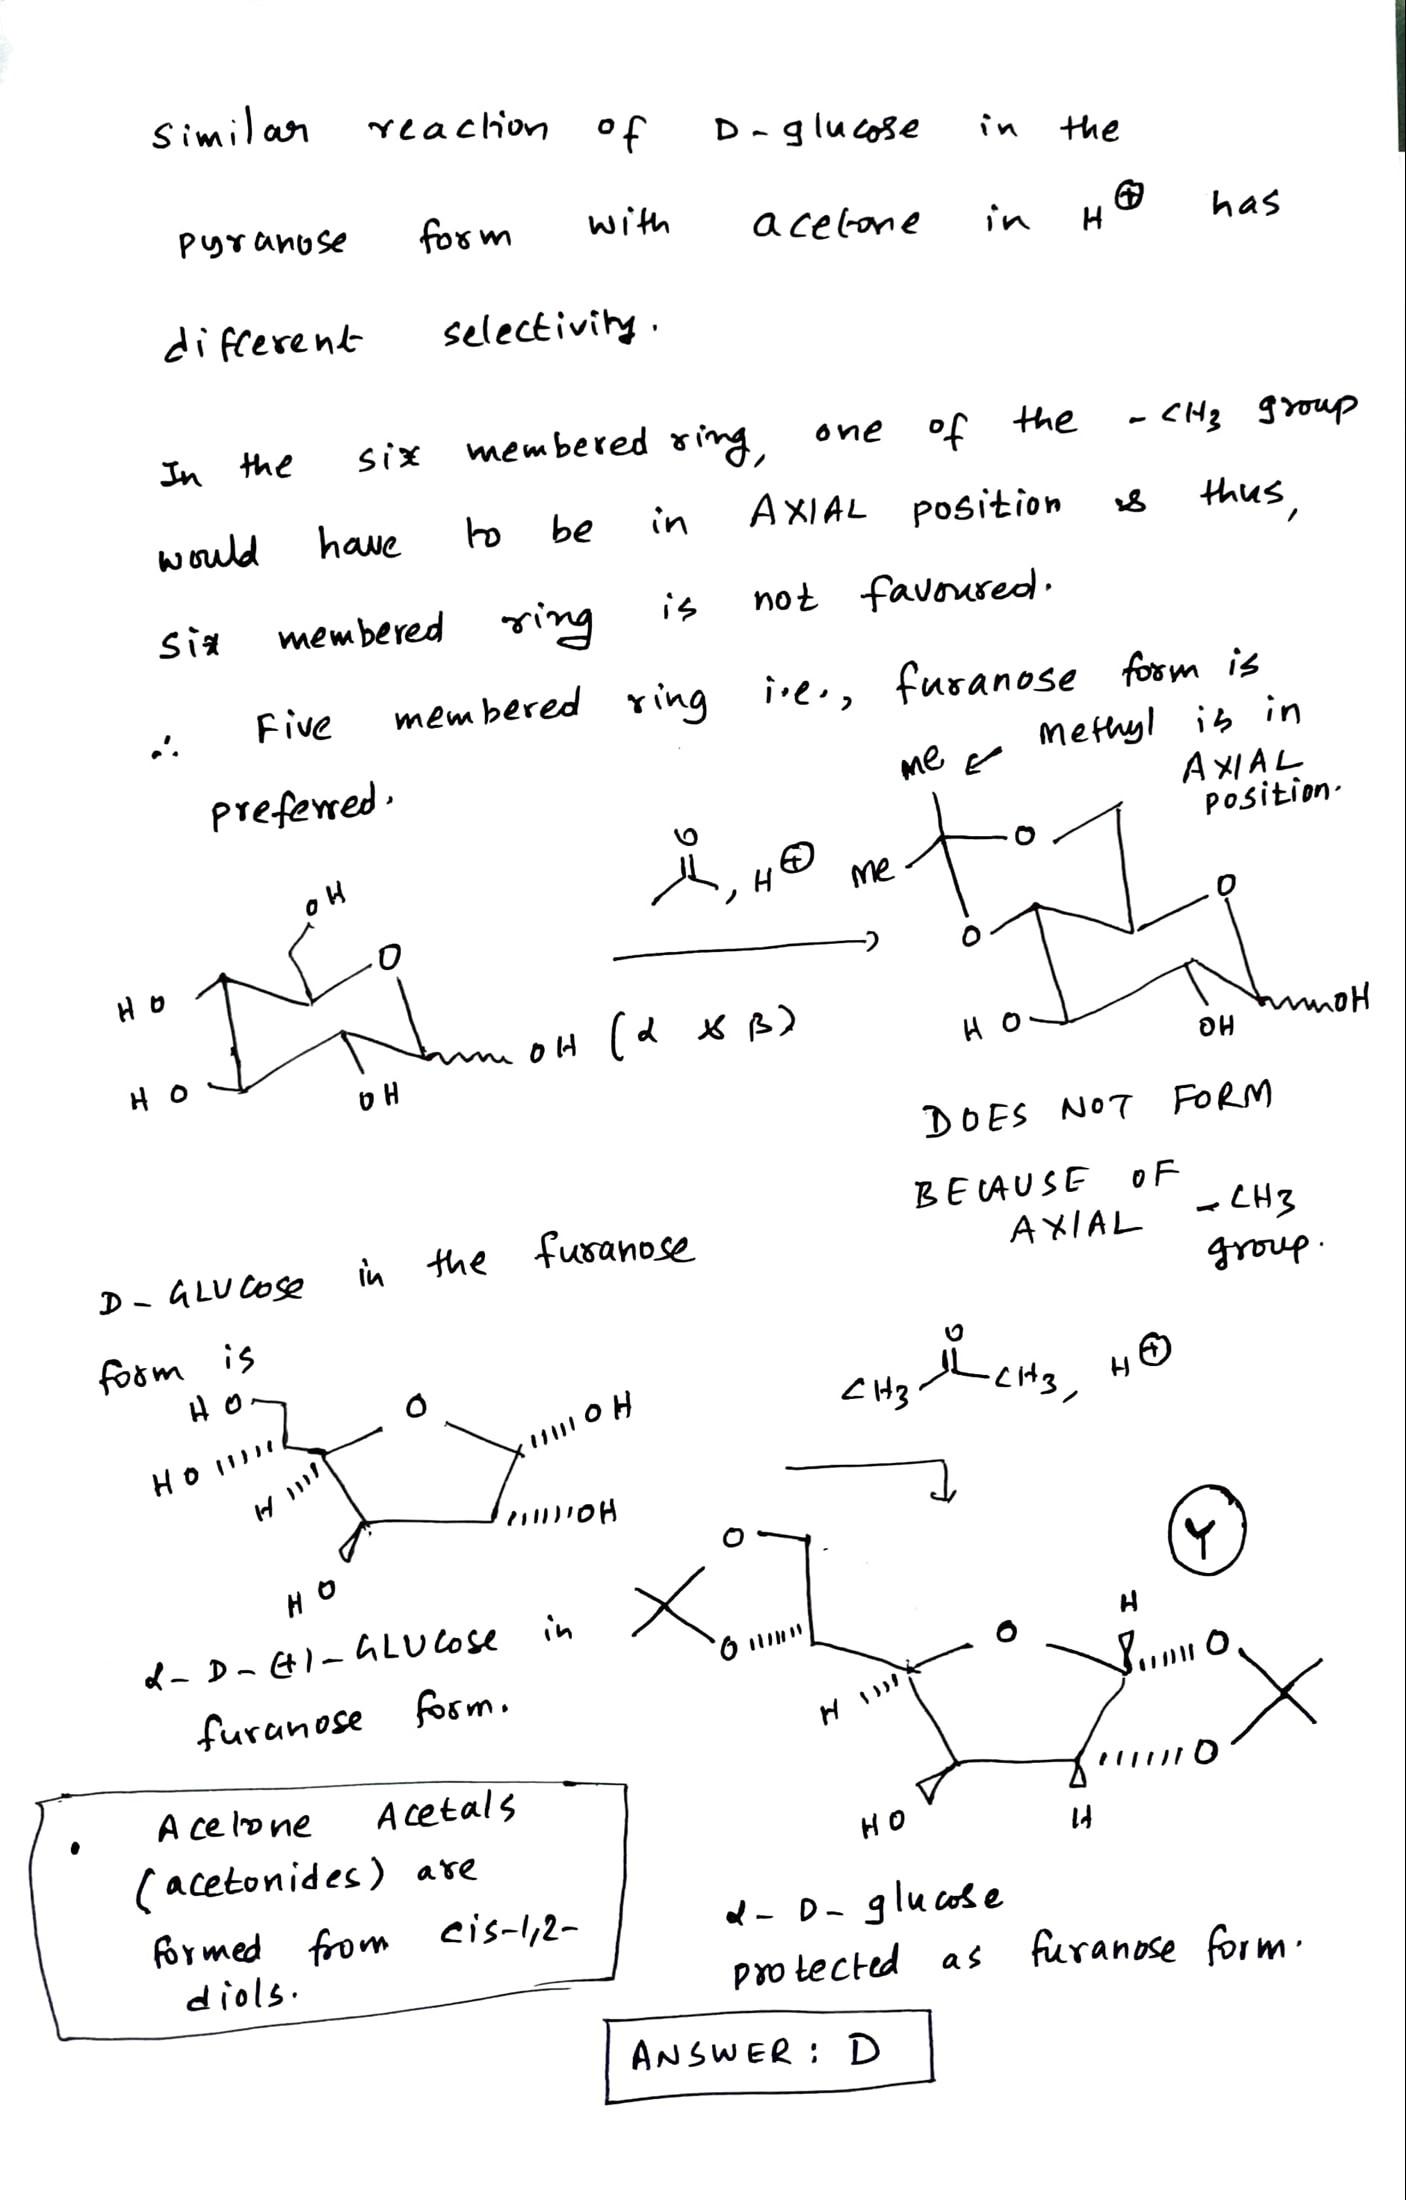 Similar reaction of D-glucose in the
pyranose form with acetone in H⊕ has
different selectivity.
In the six membered ring, one of the -CH3 group
would have to be in AXIAL position & thus,
six membered ring is not favoured.
∴ Five membered ring i.e., furanose form is
preferred.
Me ← Methyl is in
AXIAL
position.
O
, H⊕
Me
O
O
O
HO
OH
OH
OH
O
HO
HO
OH
OH (α & β)
DOES NOT FORM
BECAUSE OF
AXIAL -CH3
group.
D-GLUCOSE in the furanose
form is
HO
HO
H
O
OH
OH
HO
α-D-(+)-GLUCOSE in
furanose form.
O
CH3 CH3, H⊕
Y
O
O
H
O
H
O
O
HO
H
α-D-glucose
protected as furanose form.
• Acetone Acetals
(acetonides) are
formed from cis-1,2-
diols.
ANSWER: D